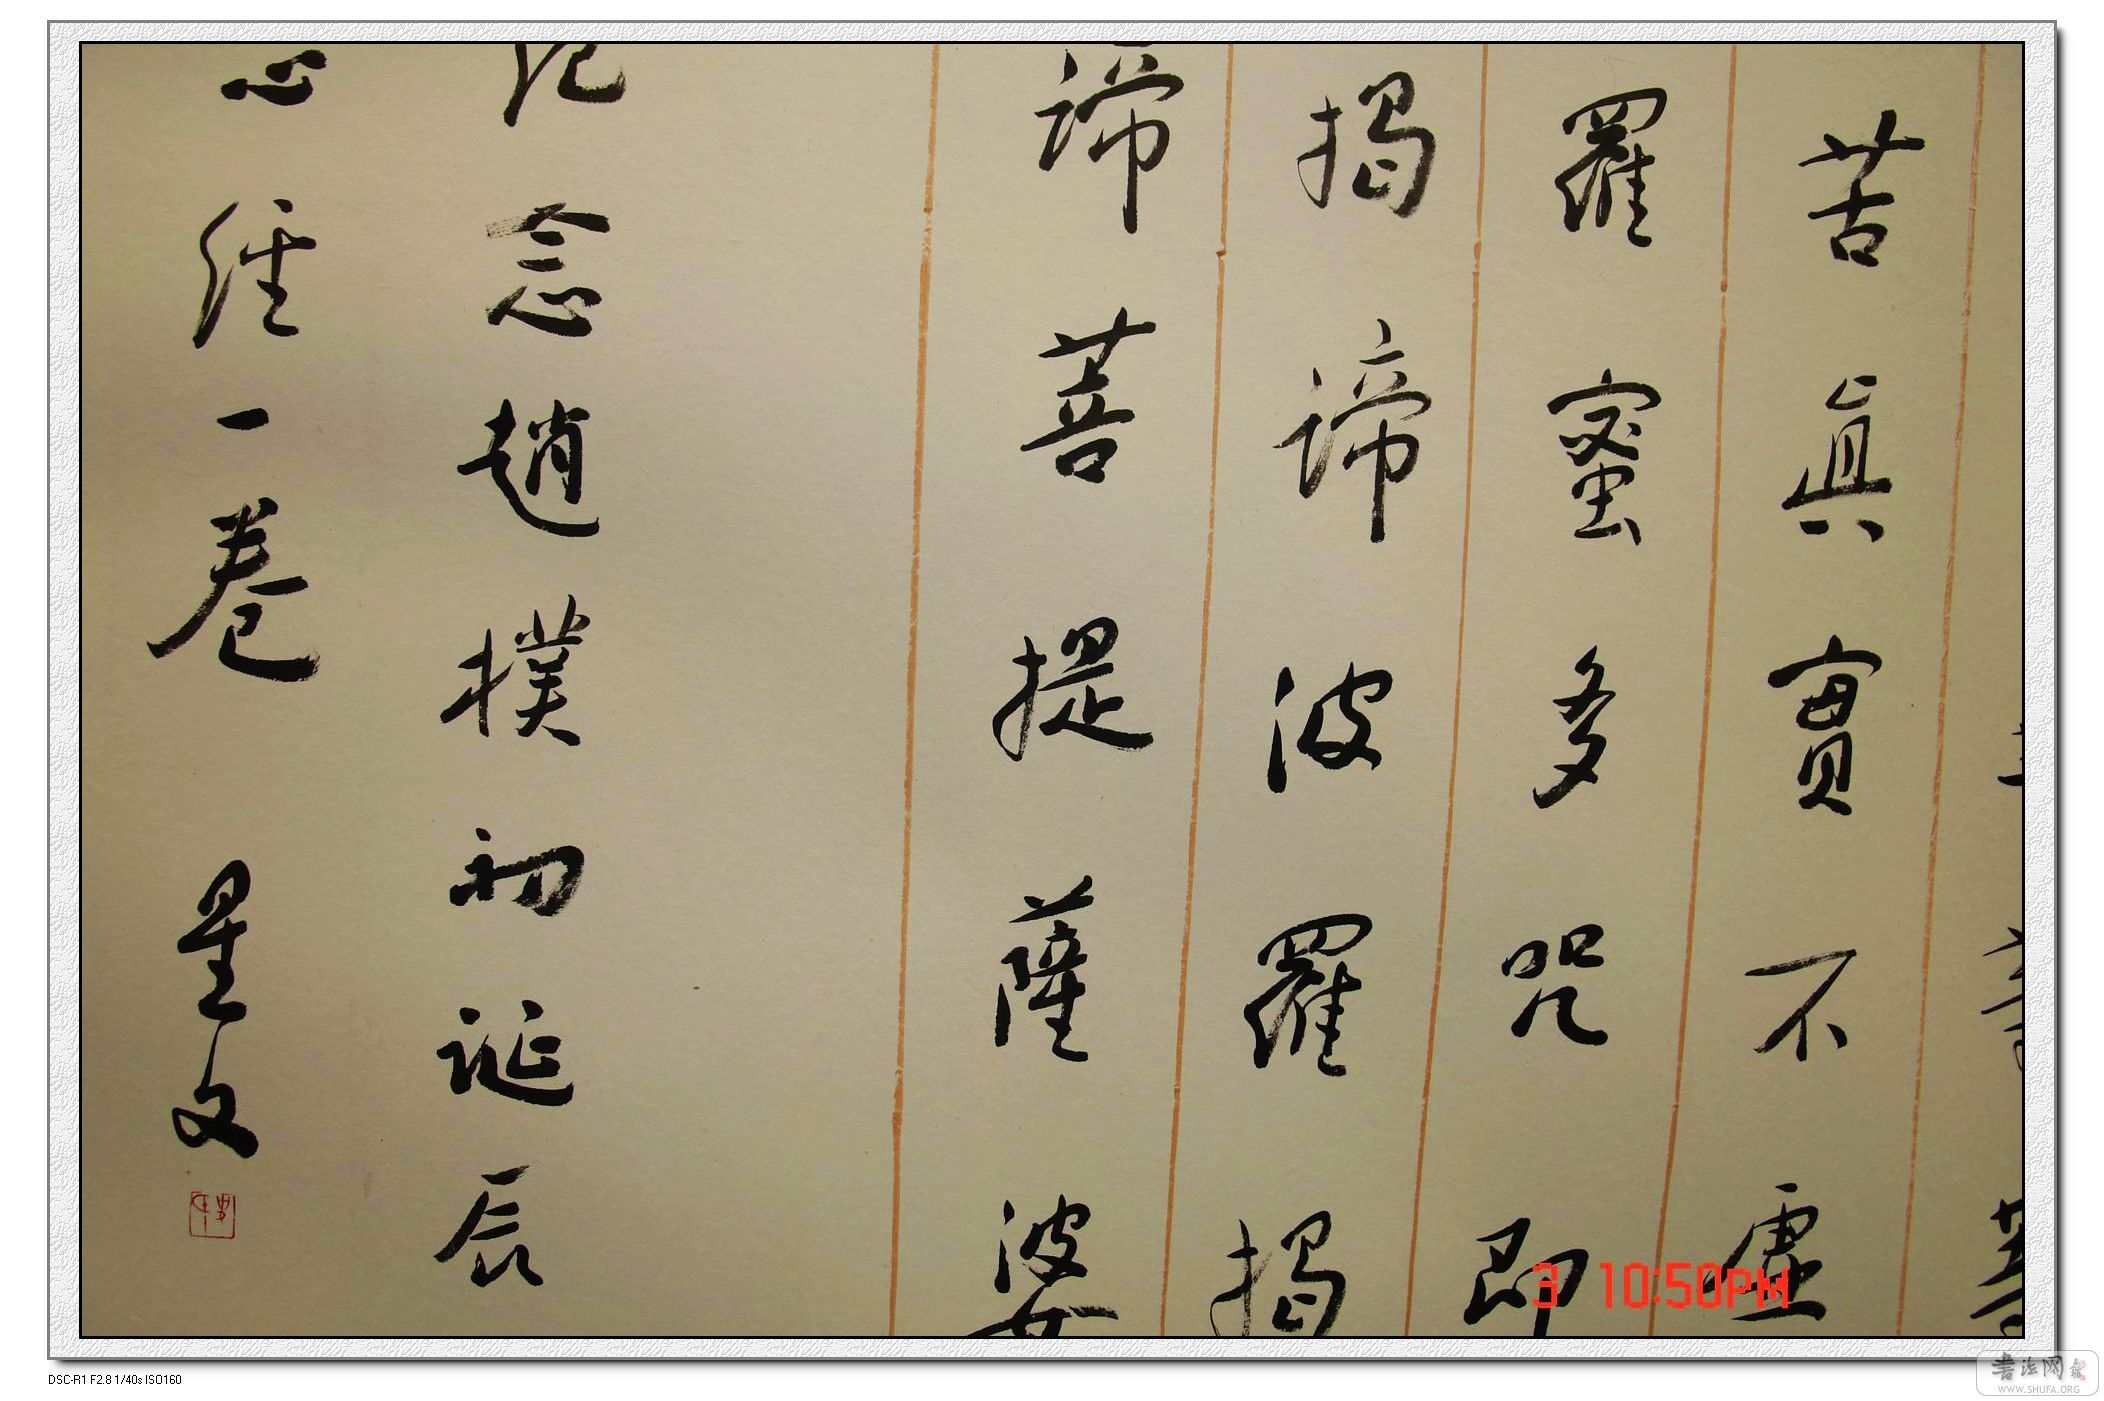 苦真實不虛
羅蜜多咒即
揭諦波羅揭
諦菩提薩婆
念趙樸初誕辰
心經一卷 星文
3 10:50PM
DSC-R1 F2.8 1/40s ISO160
书法网
WWW.SHUFA.ORG